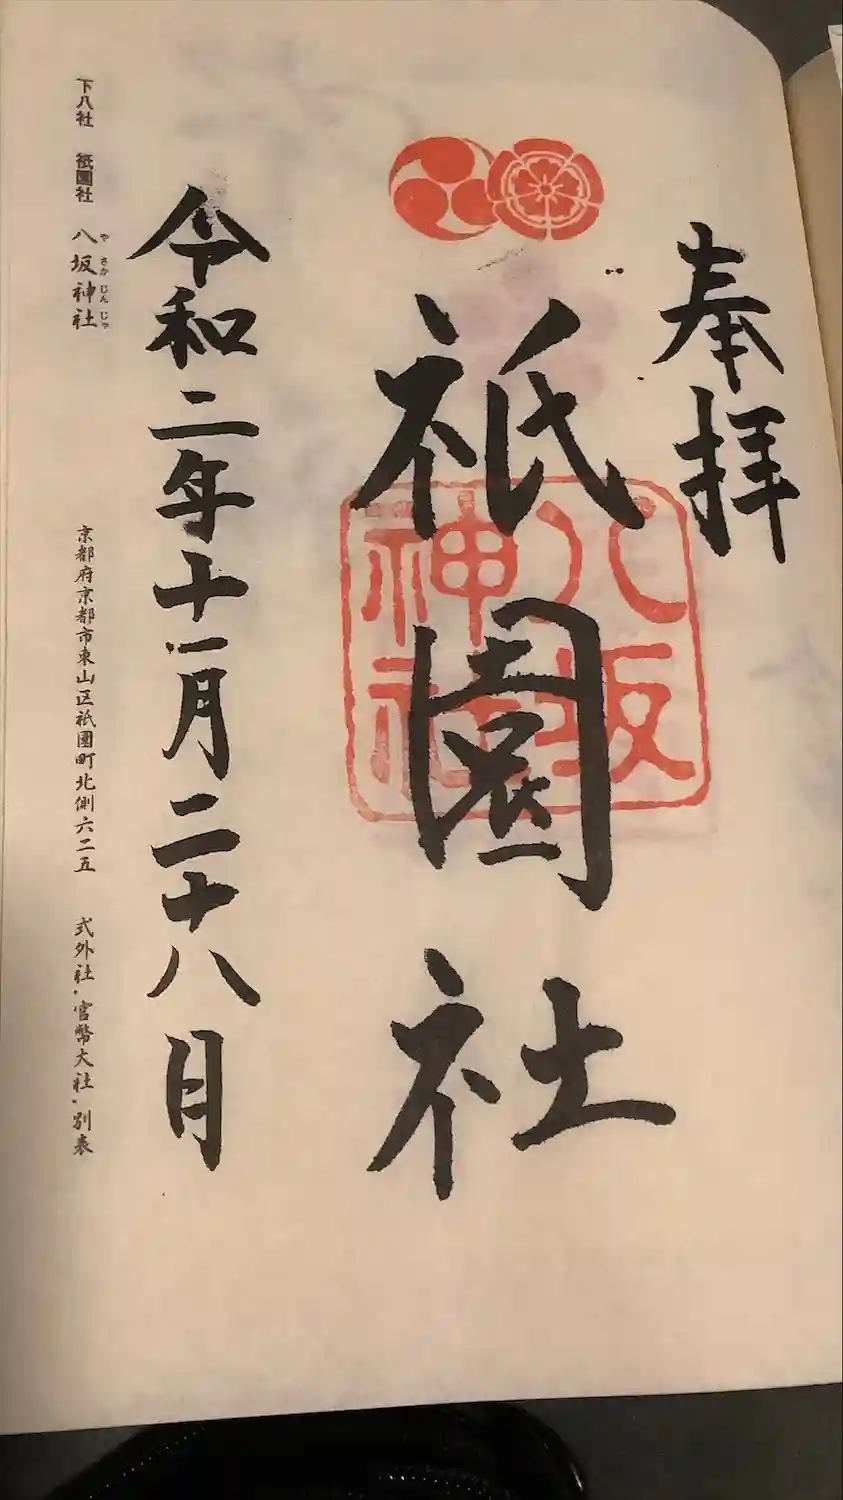 奉拝
祇園社
八坂
神社
令和二年十一月二十八日
下八社 祇園社 八坂神社
や さか じん じゃ
京都府京都市東山区祇園町北側六二五
式外社・官幣大社・別表